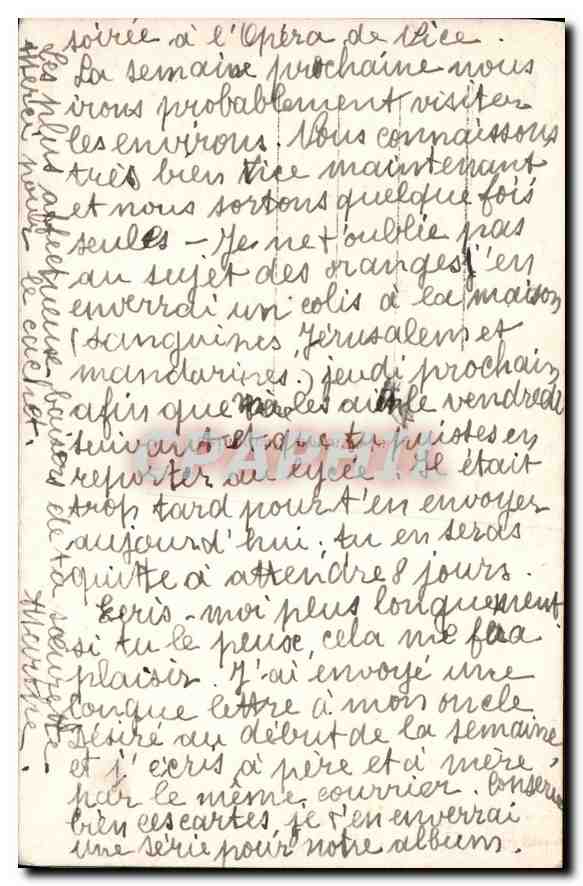 soirée à l'Opéra de Nice.
La semaine prochaine nous
irons probablement visiter
les environs. Nous connaissons
très bien Nice maintenant
et nous sortons quelque fois
seules - Je ne t'oublie pas
au sujet des oranges j'en
enverrai un colis à la maison
(sanguines, Jérusalem et
mandarines.) jeudi prochain
afin que les ait le vendredi
suivant et que tu puisses en
reporter au lycée. Il était
trop tard pour t'en envoyer
aujourd'hui. tu en seras
quitte à attendre 8 jours.
Ecris-moi plus longuement
si tu le peux, cela me fera
plaisir. J'ai envoyé une
longue lettre à mon oncle
Désiré au début de la semaine
et j'écris à père et à mère,
par le même courrier. Conserve
bien ces cartes, je t'en enverrai
une série pour notre album.
Les plus affectueux baisers de ta sœurette.
Merci pour le cachet.
CPAPHIL